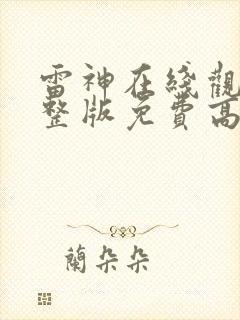 雷神在綫觀
整版免費高
蘭朵朵